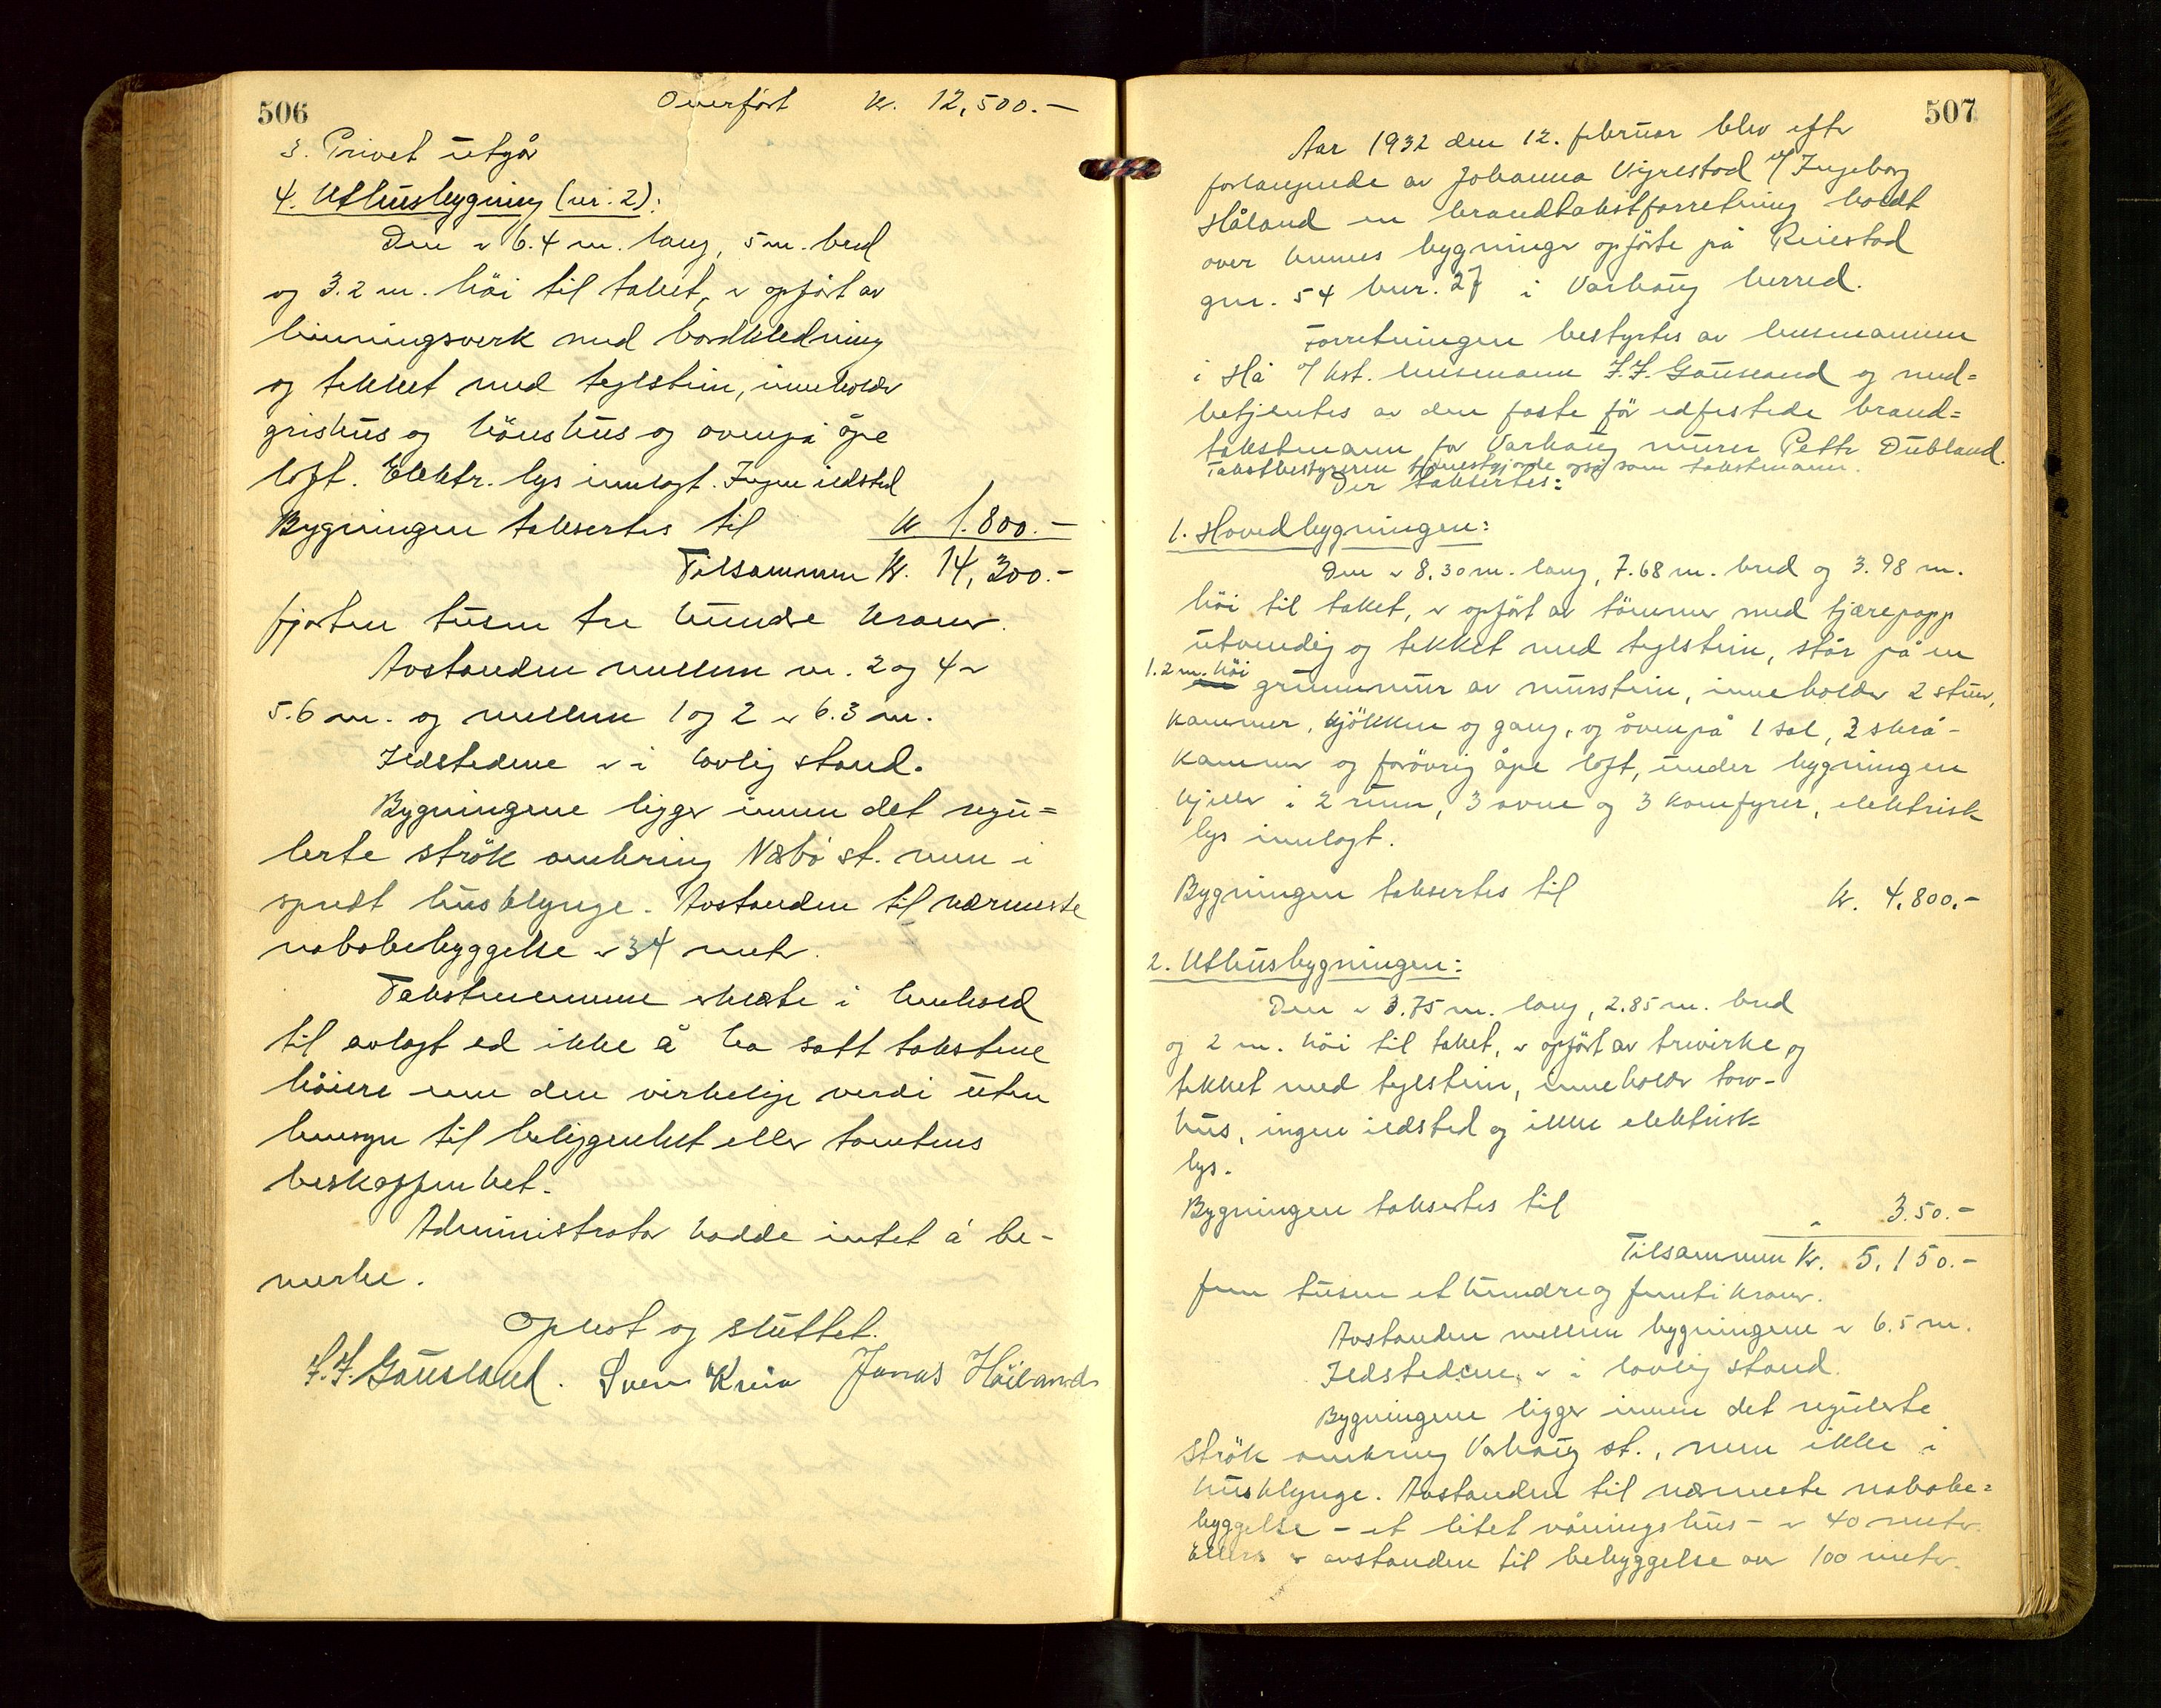 506
Overført kr. 12,500.-
3. Privet utgår
4. Uthusbygning (nr. 2):
Den er 6.4 m. lang, 5 m. bred
og 3.2 m. höi til taket, er opført av
binningsverk med bordkledning
og tekket med teglstein, inneholder
grishūs og hönshūs og ovenpå åpe
loft. Elektr. lys innlagt. Ingen ildsted
Bygningen taksertes til kr. 1.800.-
Tilsammen kr. 14,300.-
fjorten tusen tre hundre kroner.
Avstanden mellem nr. 2 og 4 er
5.6 m. og mellem 1 og 2 er 6.3 m.
Ildstedene er i lovlig stand.
Bygningene ligger innen det regu=
lerte strök omkring Nærbö st. men i
spredt husklynge. Avstanden til nærmeste
nabobebyggelse er 34 meter.
Takstmennene erklærte i henhold
til avlagt ed ikke å ha satt takstene
höiere enn den virkelige verdi uten
hensyn til beliggenhet eller tomtens
beskaffenhet.
Administrator hadde intet å be-
merke.
Oplest og sluttet.
F. F. Gausland. Sven Kvia Jonas Höiland

507
Aar 1932 den 12. februar blev efter
forlangende av Johanna Vigrestad v/ Ingeborg
Håland en brandtakstforretning holdt
over hennes bygninger opförte på Reiestad
gnr. 54 bnr. 27 i Varhaug herred.
Forretningen bestyrtes av lensmannen
i Hå v/ kst. lensmann F. F. Gausland og med=
betjentes av den faste för edfestede brand=
takstmann for Varhaug murer Petter Dubland.
Takstbestyreren tjenestgjorde også som takstmann.
Der taksertes:
1. Hovedbygningen:
Den er 8.30 m. lang, 7.68 m. bred og 3.98 m.
höi til taket, er opfört av tömmer med tjærepapp
utvendig og tekket med teglstein, står på en
1.2 m. höi
grunnmur av murstein, inneholder 2 stuer,
kammer, kjökken og gang, og ovenpå 1 sal, 2 skrå-
kammer og forövrig åpe loft, under bygningen
kjeller i 2 rum, 3 ovne og 3 komfyrer, elektrisk
lys innlagt.
Bygningen taksertes til kr. 4,800.-
2. Uthusbygningen:
Den er 3.75 m. lang, 2.85 m. bred
og 2 m. höi til taket, er opfört av trevirke og
tekket med teglstein, inneholder torv-
hus, ingen ildsted og ikke elektrisk
lys.
Bygningen taksertes til " 3.50.-
Tilsammen kr. 5,150.-
fem tusen et hundre og femti kroner.
Avstanden mellem bygningene er 6.5 m.
Ildstedene er i lovlig stand.
Bygningene ligger innen det regulerte
strök omkring Varhaug st., men ikke i
husklynge. Avstanden til nærmeste nabobe=
byggelse - et litet våningshus - er 40 meter.
Ellers er avstanden til bebyggelse over 100 meter.